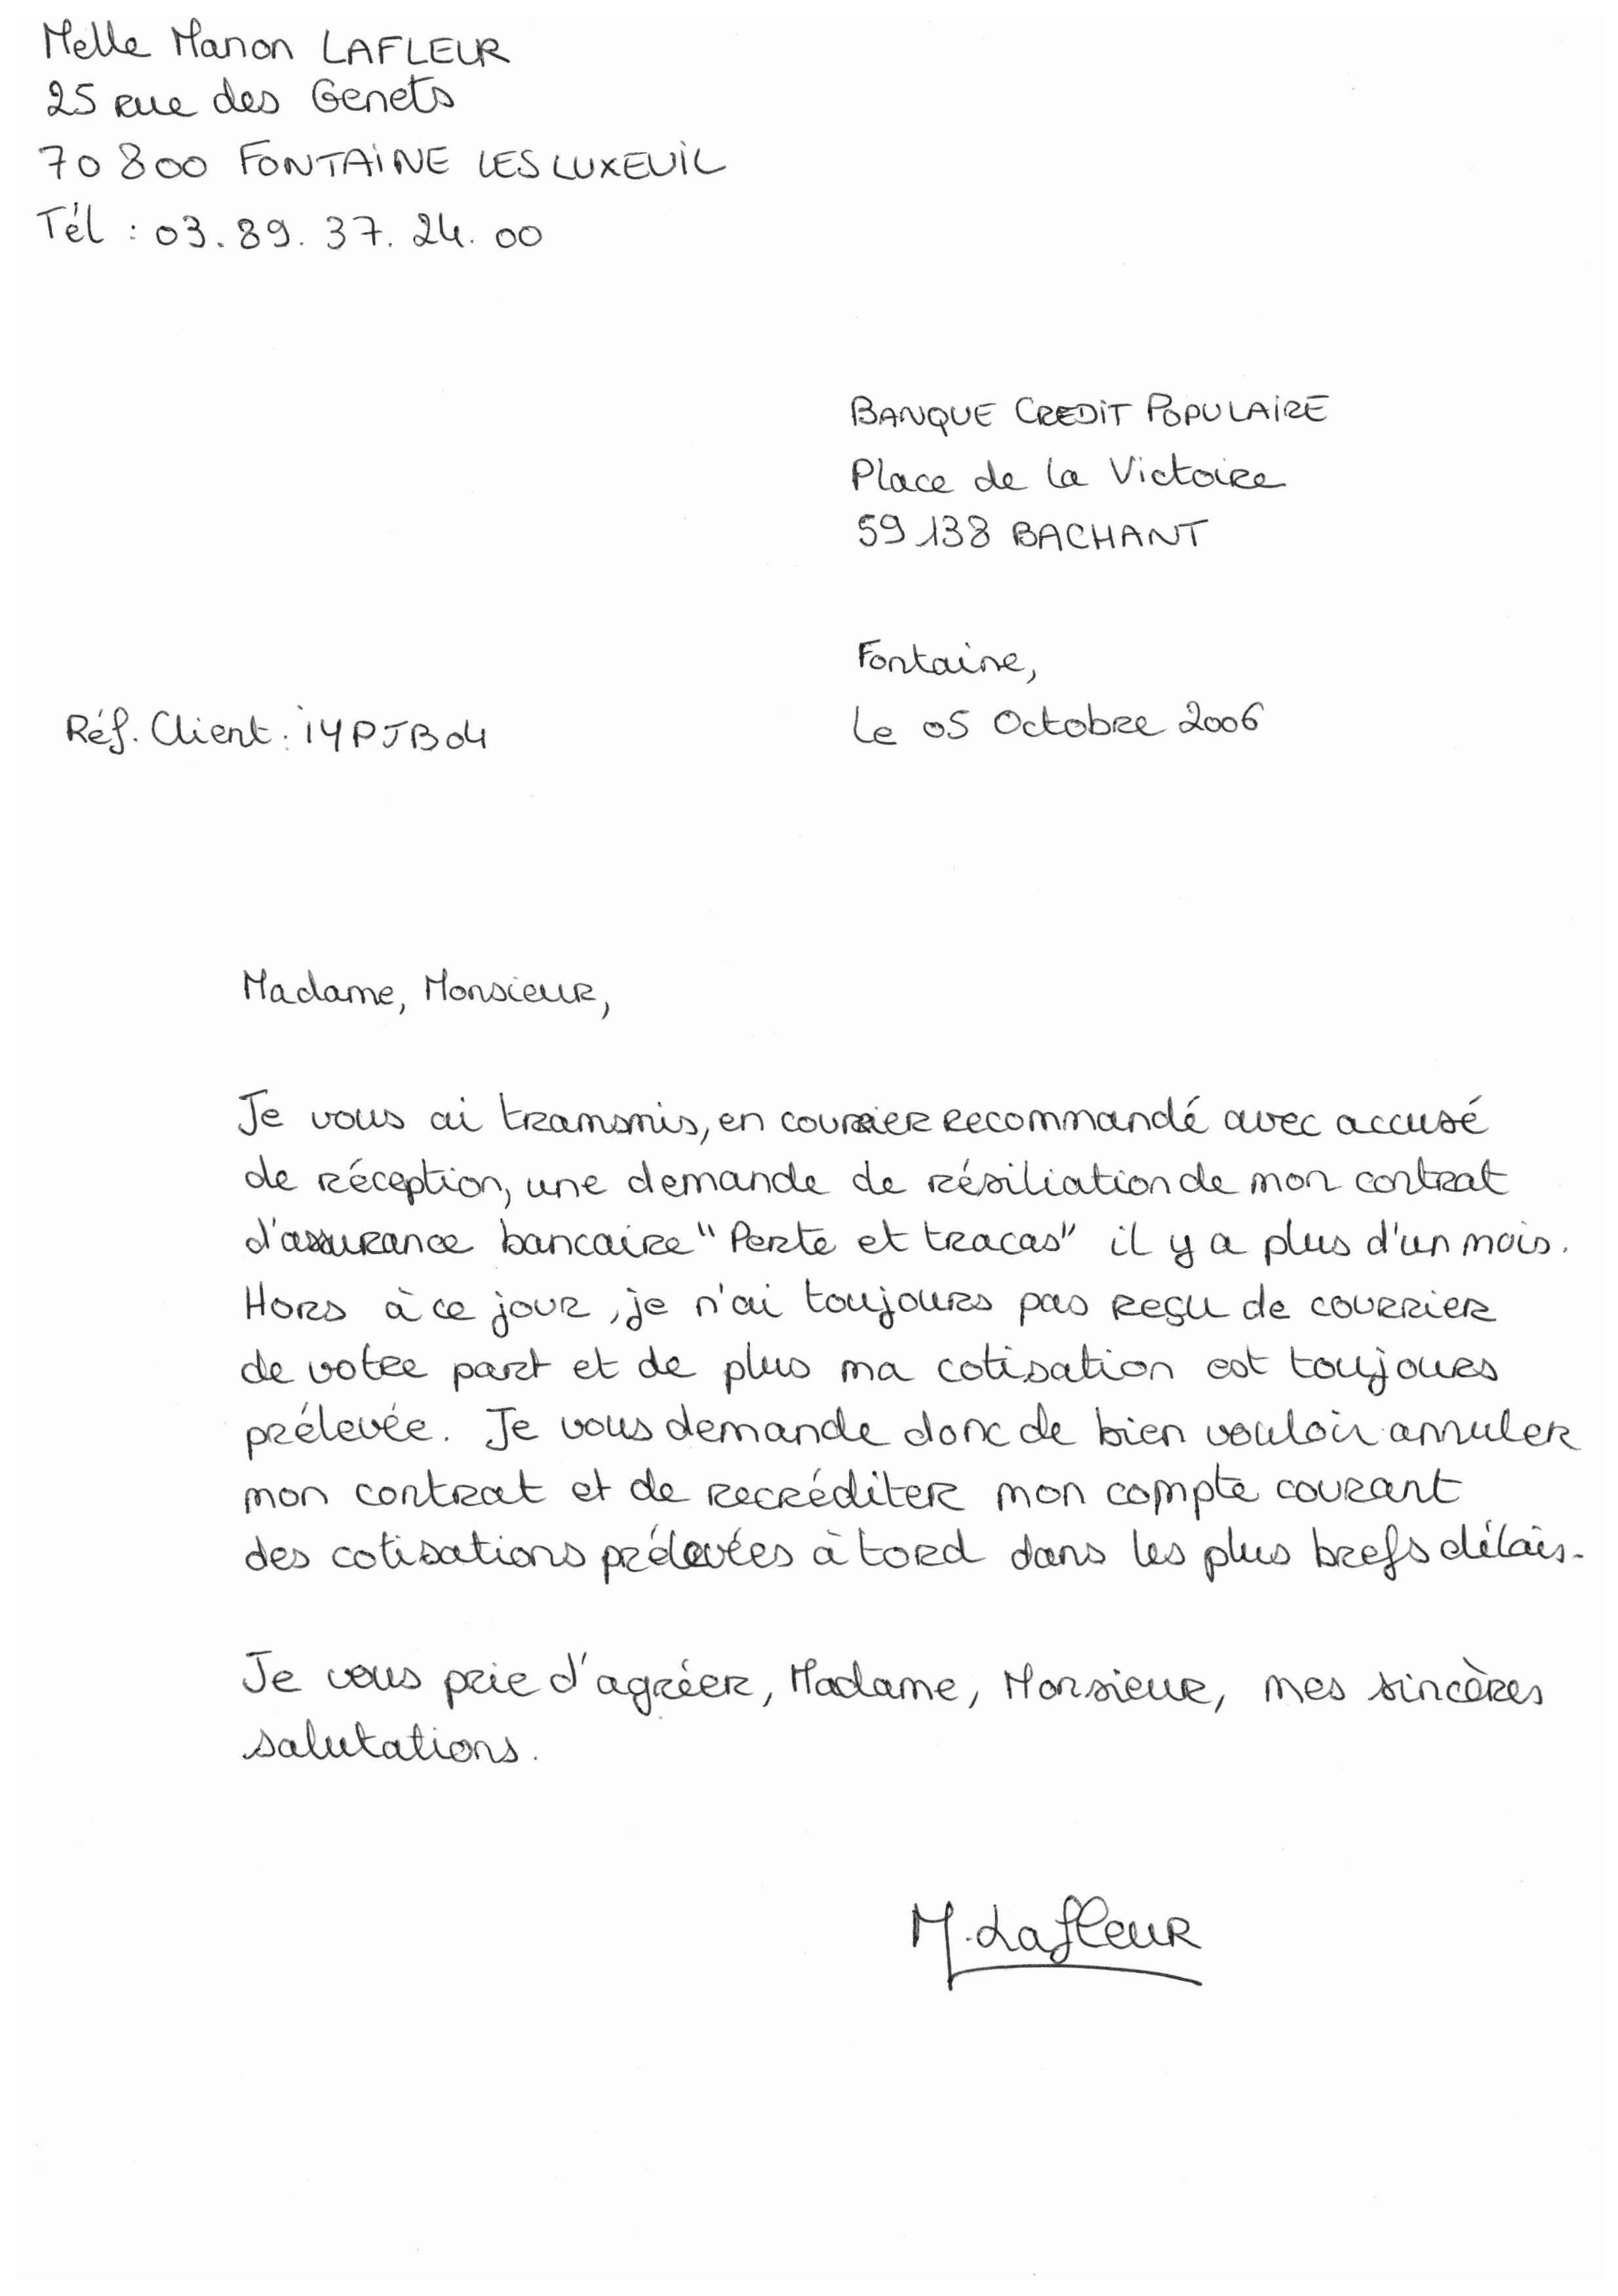 Melle Manon LAFLEUR
25 rue des Genets
70800 FONTAINE LES LUXEUIL
Tél : 03.89.37.24.00
BANQUE CREDIT POPULAIRE
Place de la Victoire
59138 BACHANT
Fontaine,
Le 05 Octobre 2006
Réf. Client : i4PJB04
Madame, Monsieur,
Je vous ai transmis, en courrier recommandé avec accusé
de réception, une demande de résiliation de mon contrat
d'assurance bancaire "Perte et tracas" il y a plus d'un mois.
Hors à ce jour, je n'ai toujours pas reçu de courrier
de votre part et de plus ma cotisation est toujours
prélevée. Je vous demande donc de bien vouloir annuler
mon contrat et de recréditer mon compte courant
des cotisations prélevées à tord dans les plus brefs délais.
Je vous prie d'agréer, Madame, Monsieur, mes sincères
salutations.
M. Lafleur